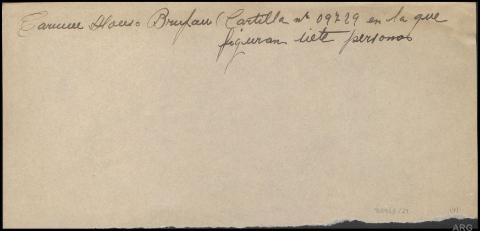 Carmen Alonso Brufau (Cartilla nº 09729 en la que
figuran siete personas
ARG